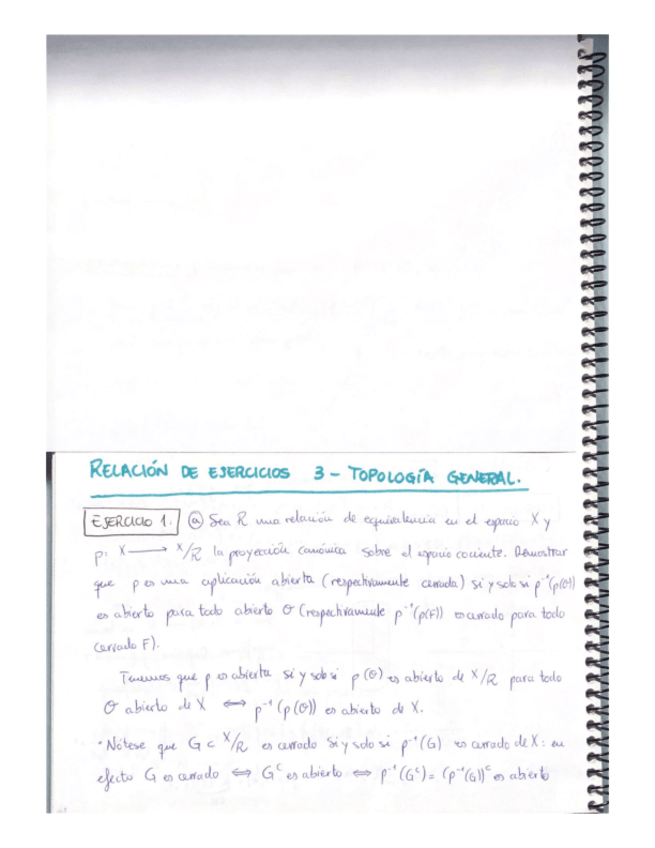 RELACIÓN DE EJERCICIOS 3 - TOPOLOGÍA GENERAL.
EJERCICIO 1. ⓐ Sea R una relación de equivalencia en el espacio X y
p: X → X/R la proyección canónica sobre el espacio cociente. Demostrar
que p es una aplicación abierta (respectivamente cerrada) si y solo si p⁻¹(p(O))
es abierto para todo abierto O (respectivamente p⁻¹(p(F)) es cerrado para todo
cerrado F).
Tenemos que p es abierta si y solo si p(O) es abierto de X/R para todo
O abierto de X ⟺ p⁻¹(p(O)) es abierto de X.
· Nótese que G ⊂ X/R es cerrado si y solo si p⁻¹(G) es cerrado de X: en
efecto G es cerrado ⟺ Gᶜ es abierto ⟺ p⁻¹(Gᶜ) = (p⁻¹(G))ᶜ es abierto